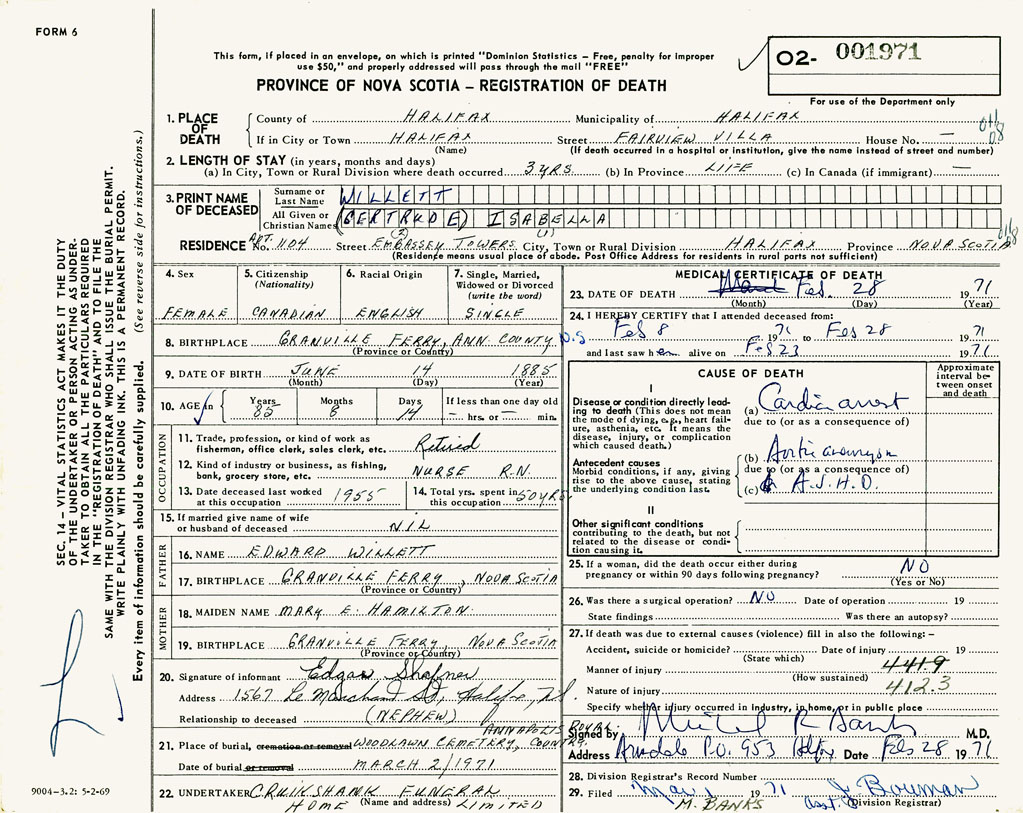 FORM 6
This form, if placed in an envelope, on which is printed "Dominion Statistics - Free, penalty for improper
use $50," and properly addressed will pass through the mail "FREE"
PROVINCE OF NOVA SCOTIA – REGISTRATION OF DEATH
02- 001971
For use of the Department only
SEC. 14 – VITAL STATISTICS ACT MAKES IT THE DUTY
OF THE UNDERTAKER OR PERSON ACTING AS UNDER-
TAKER TO OBTAIN ALL THE PARTICULARS REQUIRED
IN THE "REGISTRATION OF DEATH" AND TO FILE THE
SAME WITH THE DIVISION REGISTRAR WHO SHALL ISSUE THE BURIAL PERMIT.
WRITE PLAINLY WITH UNFADING INK. THIS IS A PERMANENT RECORD.
Every item of information should be carefully supplied. (See reverse side for instructions.)
1. PLACE OF DEATH County of HALIFAX Municipality of HALIFAX
If in City or Town HALIFAX Street FAIRVIEW VILLA House No. —
(Name) (If death occurred in a hospital or institution, give the name instead of street and number)
2. LENGTH OF STAY (in years, months and days)
(a) In City, Town or Rural Division where death occurred 3 YRS (b) In Province LIFE (c) In Canada (if immigrant) —
3. PRINT NAME OF DECEASED Surname or Last Name WILLETT
All Given or Christian Names (GERTRUDE) ISABELLA
(2) (1)
RESIDENCE APT. No. 1104 Street EMBASSEY TOWERS City, Town or Rural Division HALIFAX Province NOVA SCOTIA
(Residence means usual place of abode. Post Office Address for residents in rural ports not sufficient)
4. Sex FEMALE
5. Citizenship (Nationality) CANADIAN
6. Racial Origin ENGLISH
7. Single, Married, Widowed or Divorced (write the word) SINGLE
8. BIRTHPLACE GRANVILLE FERRY, ANN. COUNTY N.S
(Province or Country)
9. DATE OF BIRTH JUNE 14 1885
(Month) (Day) (Year)
10. AGE in Years 85 Months 8 Days 14 If less than one day old — hrs. or — min.
OCCUPATION
11. Trade, profession, or kind of work as fisherman, office clerk, sales clerk, etc. Retired
12. Kind of industry or business, as fishing, bank, grocery store, etc. NURSE R.N.
13. Date deceased last worked at this occupation 1955
14. Total yrs. spent in this occupation 50 YRS
15. If married give name of wife or husband of deceased NIL
FATHER
16. NAME EDWARD WILLETT
17. BIRTHPLACE GRANVILLE FERRY, NOVA SCOTIA
(Province or Country)
MOTHER
18. MAIDEN NAME MARY E. HAMILTON
19. BIRTHPLACE GRANVILLE FERRY, NOVA SCOTIA
(Province or Country)
20. Signature of informant Edgar Shafner
Address 1567 Le Marchant St, Halifax, N.S.
Relationship to deceased (NEPHEW)
ANNAPOLIS ROYAL
21. Place of burial, cremation or removal WOODLAWN CEMETERY, COUNTY
Date of burial or removal MARCH 2/1971
22. UNDERTAKER CRUIKSHANK FUNERAL
HOME (Name and address) LIMITED
9004-3.2: 5-2-69
MEDICAL CERTIFICATE OF DEATH
23. DATE OF DEATH Feb. 28 1971
(Month) (Day) (Year)
24. I HEREBY CERTIFY that I attended deceased from:
Feb 8 1971 to Feb 28 1971
and last saw her alive on Feb 23 1971
CAUSE OF DEATH
Approximate interval between onset and death
I
Disease or condition directly leading to death (This does not mean the mode of dying, e.g., heart failure, asthenia, etc. It means the disease, injury, or complication which caused death.)
(a) Cardiac arrest
due to (or as a consequence of)
Antecedent causes
Morbid conditions, if any, giving rise to the above cause, stating the underlying condition last.
(b) Aortic aneurysm
due to (or as a consequence of)
(c) A.S.H.D.
II
Other significant conditions contributing to the death, but not related to the disease or condition causing it.
25. If a woman, did the death occur either during pregnancy or within 90 days following pregnancy? NO
(Yes or No)
26. Was there a surgical operation? NO Date of operation 19
State findings Was there an autopsy?
27. If death was due to external causes (violence) fill in also the following:–
Accident, suicide or homicide? Date of injury 19
(State which)
Manner of injury 4419
(How sustained)
Nature of injury 412.3
Specify whether injury occurred in industry, in home, or in public place
Signed by M.D.
Address Armdale P.O. 953 Date Feb 28 1971
28. Division Registrar's Record Number
29. Filed Mar 1 1971 J Bowman
M. BANKS Asst. (Division Registrar)